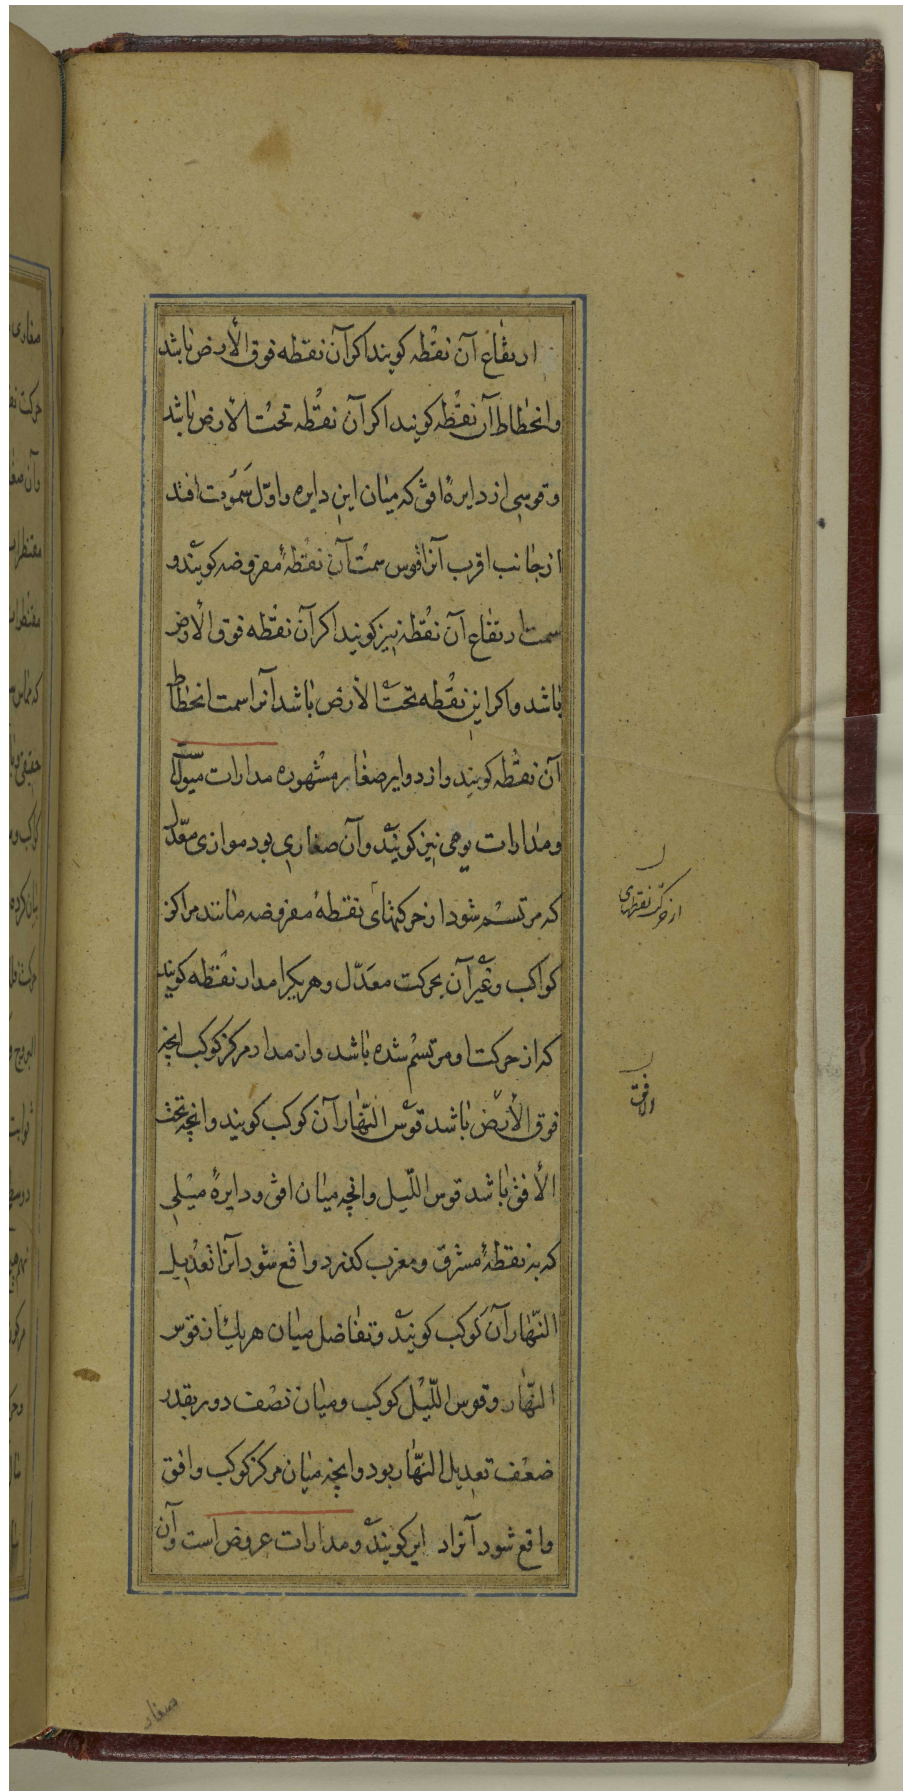 ارتفاع آن نقطه کویند اکر آن نقطه فوق الأرض باشد
وانحطاط آن نقطه کویند اکر آن نقطه تحت الأرض باشد
وقوسی از دایرهٔ افق که میان این دایره واوّل سموت افتد
از جانب اقرب آنرا قوس سمت آن نقطهٔ مفروضه کویند و
سمت ارتفاع آن نقطه نیز کویند اکر آن نقطه فوق الأرض
باشد واکر این نقطه تحت الأرض باشد آنرا سمت انحطاط
آن نقطه کویند واز دوایر صغار مشهوره مدارات میولست
ومدارات یومی نیز کویند وآن صغاری بود موازی معدّل
که مرتسم شود از حرکتهای نقطهٔ مفروضه مانند مراکز
کواکب وغیر آن بحرکت معدّل وهر یکرا مدار نقطه کویند
که از حرکت او مرتسم شده باشد واز مدار مرکز کوکب انچه
فوق الأرض باشد قوس النّهار آن کوکب کویند وانچه تحت
الأفق باشد قوس اللّیل وانچه میان افق ودایرهٔ میلی
که به نقطهٔ مشرق ومغرب کذرد واقع شود آنرا تعدیل
النّهار آن کوکب کویند وتفاضل میان هر یک از قوس
النّهار وقوس اللّیل کوکب ومیان نصف دور بقدر
ضعف تعدیل النهّار بود وانچه میان مرکز کوکب وافق
واقع شود آنرا دایر کویند ومدارات عروض است وآن
از حرکت نقطهای
الافق
صغار